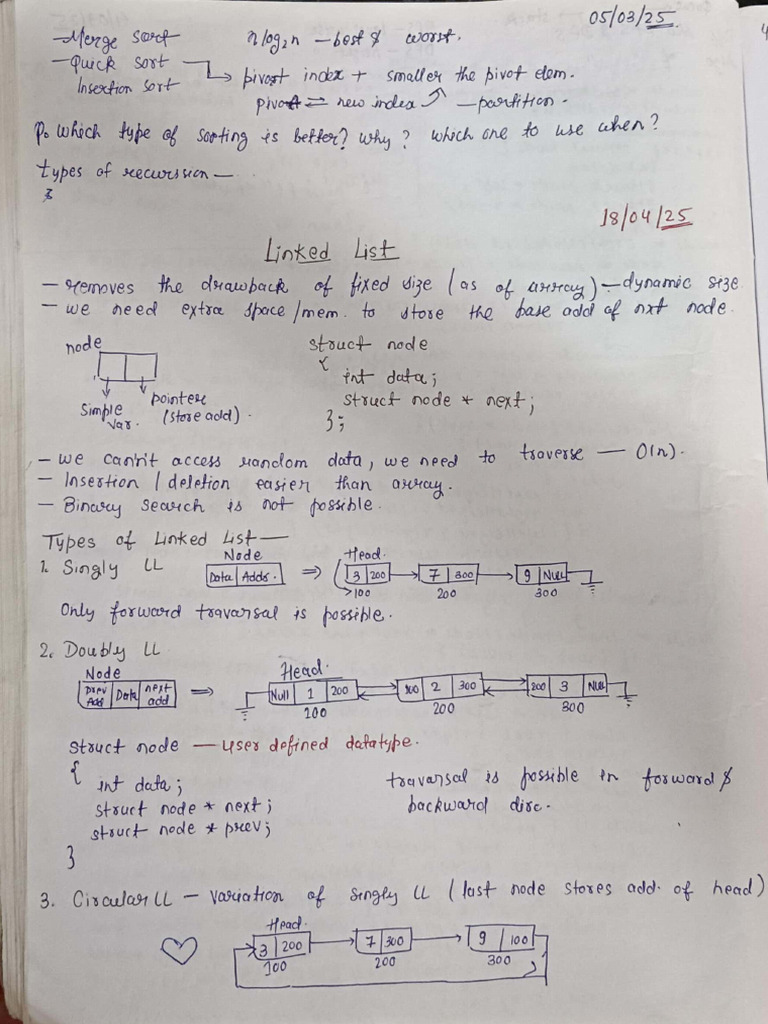 05/03/25
- Merge Sort nlog2n - best & worst.
- Quick Sort → pivot index + smaller the pivot elem.
Insertion sort pivot ⇌ new index - partition.
P. which type of sorting is better? why? which one to use when?
types of recurssion -
18/04/25
Linked List
- removes the drawback of fixed size (as of array) - dynamic size
- we need extra space/mem. to store the base add of nxt node.
node
struct node
{
int data;
struct node * next;
};
simple var.
pointer (store add).
- we can't access random data, we need to traverse - O(n).
- Insertion / deletion easier than array.
- Binary search is not possible.
Types of Linked List -
1. Singly LL
Node
Data | Addr. ⇒
Head.
3 | 200 → 7 | 300 → 9 | Null
100 200 300
Only forward travarsal is possible.
2. Doubly LL
Node
Prev Add | Data | next add ⇒
Head.
Null | 1 | 200 100 | 2 | 300 200 | 3 | Null
100 200 300
struct node - user defined datatype.
{
int data;
struct node * next;
struct node * prev;
}
travarsal is possible in forward &
backward dirc.
3. Circular LL - variation of singly LL (last node stores add. of head)
Head.
3 | 200 → 7 | 300 → 9 | 100
100 200 300